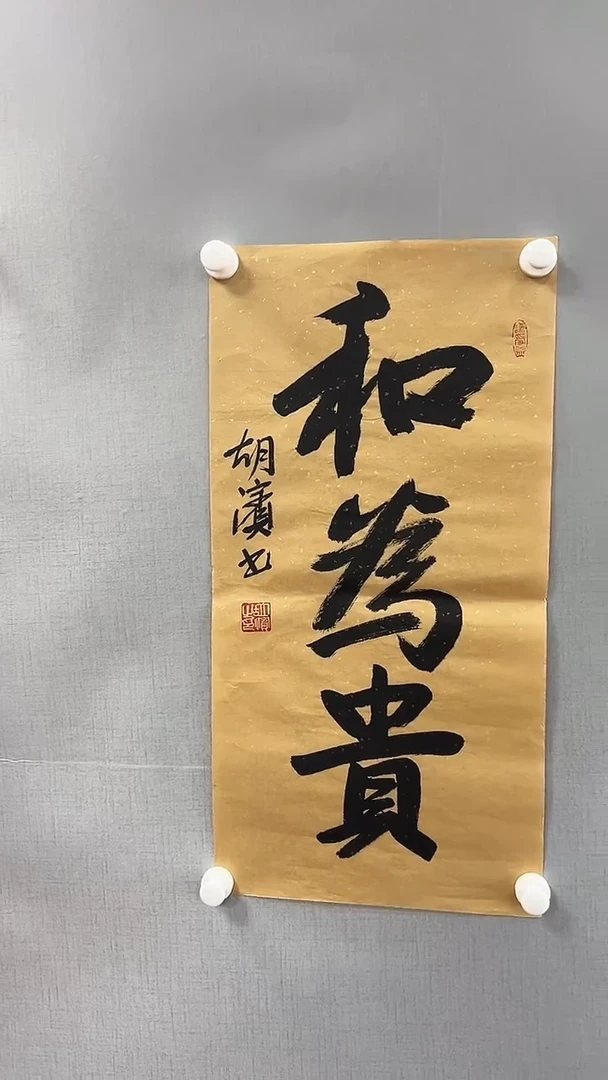 和為貴
胡濱书